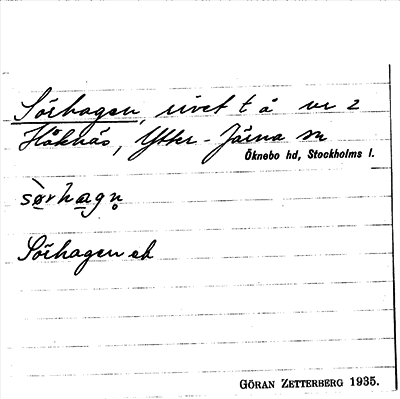 Sörhagen, rivet t å nr 2
Höknäs, Ytter-Järna sn
Öknebo hd, Stockholms l.
sørhagn̥
Sörhagen ek
GÖRAN ZETTERBERG 1935.